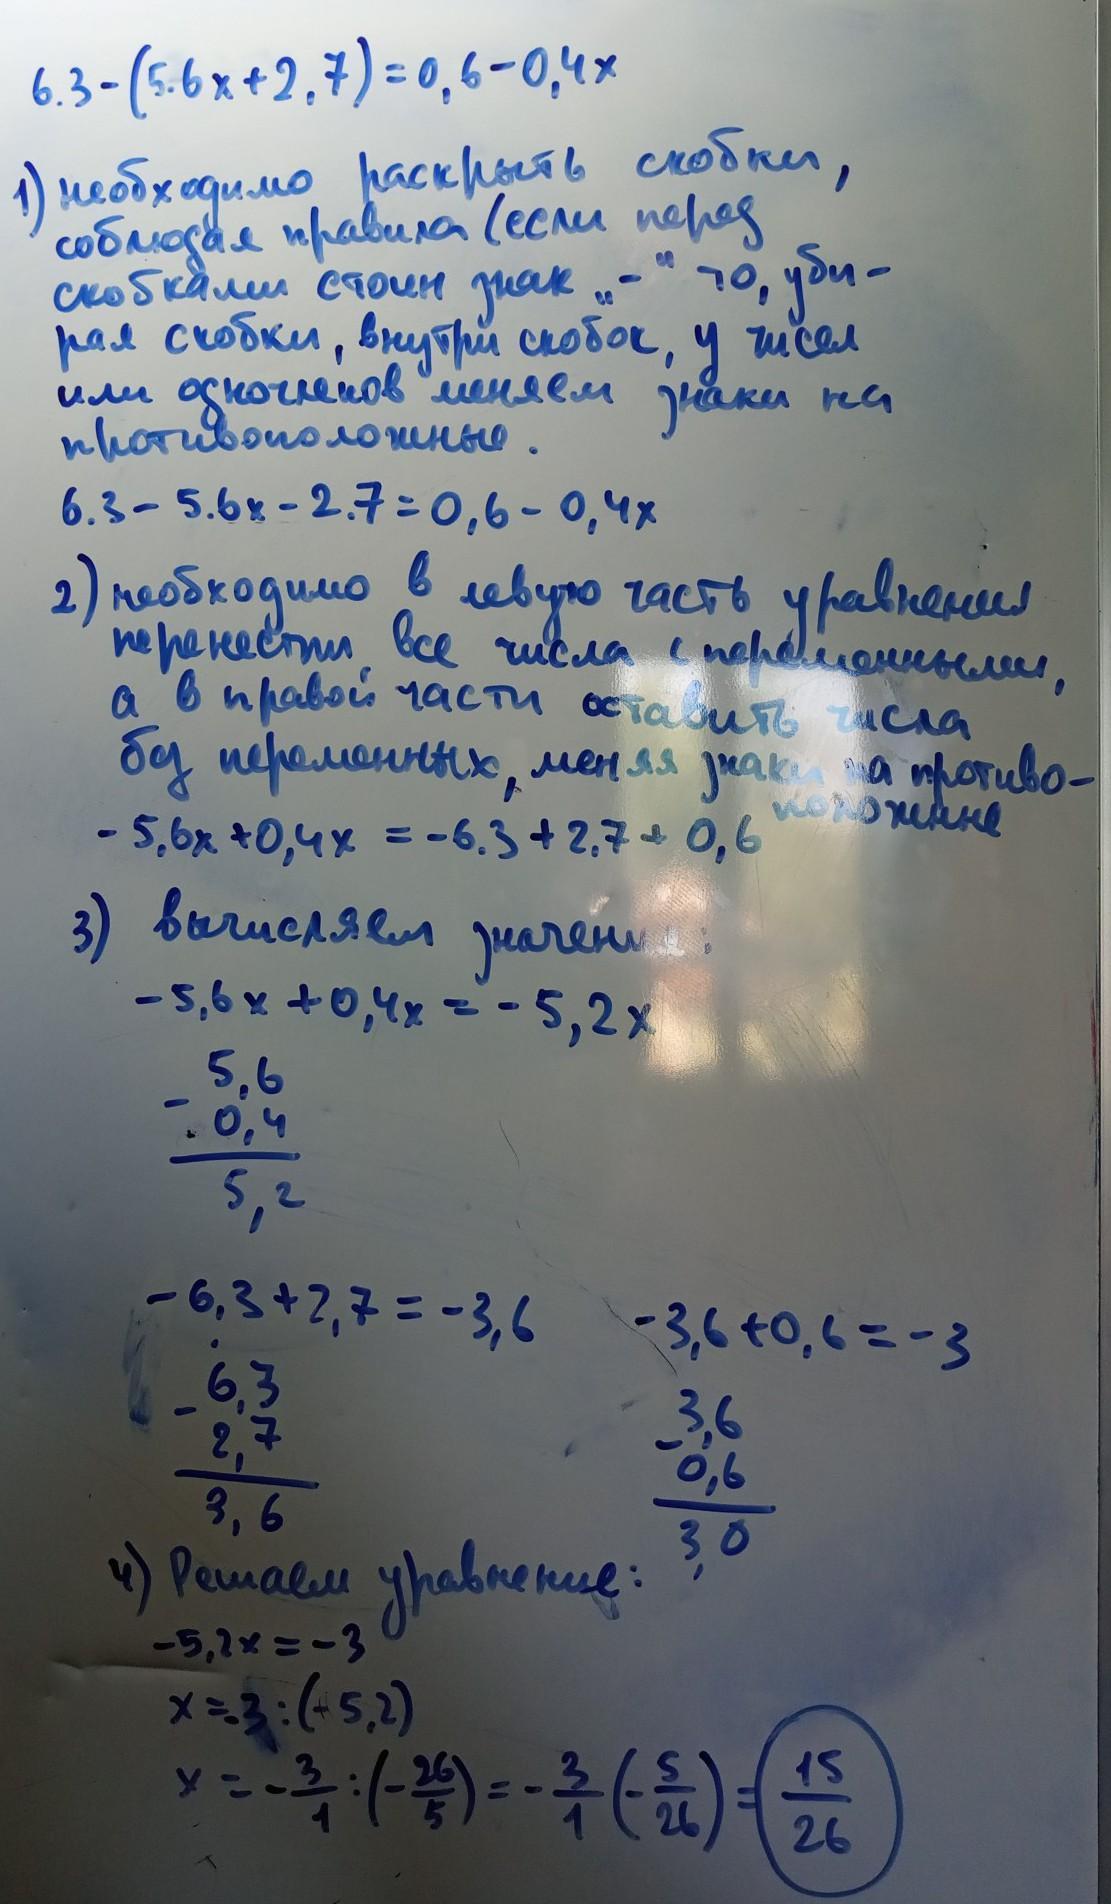 6.3-(5.6x+2,7)=0,6-0,4x
1) необходимо раскрыть скобки,
соблюдая правила (если перед
скобками стоит знак „-" то, уби-
рая скобки, внутри скобок, у чисел
или одночленов меняем знаки на
противоположные.
6.3-5.6x-2.7=0,6-0,4x
2) необходимо в левую часть уравнения
перенести, все числа с переменными,
а в правой части оставить числа
без переменных, меняя знаки на противо-
положные
-5,6x+0,4x=-6.3+2.7+0,6
3) вычисляем значения:
-5,6x+0,4x=-5,2x
5,6
-
0,4
5,2
-6,3+2,7=-3,6
-3,6+0,6=-3
6,3
-
2,7
3,6
3,6
-
0,6
3,0
4) Решаем уравнение:
-5,2x=-3
x=-3:(-5,2)
x=-3/1:(-26/5)=-3/1(-5/26)=15/26